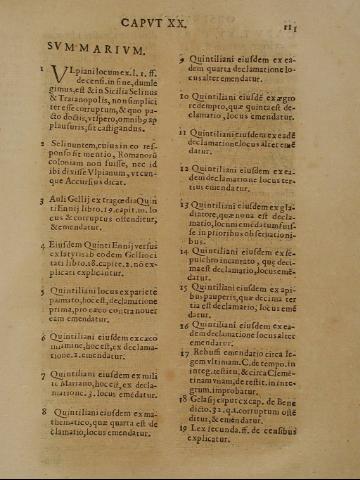 CAPVT XX.
111
SVMMARIVM.
1 VLpiani locum ex. l. 1. ff.
de censib. in fine, dum le
gimus, est & in Sicilia Selinus
& Traianopolis, non simplici
ter esse corruptum, & quo pa-
cto doctis, vt spero, omnibꝰ ap
plausuris, sit castigandus.
2 Selinuntem, cuius in eo re-
sponso fit mentio, Romanorũ
coloniam non fuisse, nec id
ibi dixisse Vlpianum, vtcun-
que Accursius dicat.
3 Auli Gellij ex tragœdia Quin
ti Ennij libro. 19. capit. 10. lo
cus & corruptus ostenditur,
& emendatur.
4 Eiusdem Quinti Ennij versus
ex satyris ab eodem Gellio ci
tati libro. 18. capite. 2. nõ ex-
plicati explicantur.
5 Quintiliani locus ex pariete
palmato, hoc est, declamatione
prima, pro cæco contra nouer
cam emendatur.
6 Quintiliani eiusdem ex cæco
in limine, hoc est, ex declama-
tione. 2. emendatur.
7 Quintiliani eiusdem ex mili
te Mariano, hoc est, ex decla-
matione. 3. locus emẽdatur.
8 Quintiliani eiusdem ex ma-
thematico, quæ quarta est de
clamatio, locus emendatur.
9 Quintiliani eiusdem ex ea-
dem quarta declamatione lo-
cus alter emendatur.
10 Quintiliani eiusdẽ ex ægro
redempto, quæ quinta est de-
clamatio, locus emendatur.
11 Quintiliani eiusdem ex eadẽ
declamatione locus alter emẽ
datur.
12 Quintiliani eiusdem ex ea-
dem declamatione locus ter-
tius emendatur.
13 Quintiliani eiusdem ex gla-
diatore, quæ nona est decla-
matio, locum emendatum fuis-
se in prioribus obseruationi-
bus.
14 Quintiliani eiusdem ex se-
pulchro incantato, quę deci-
ma est declamatio, locus emẽ-
datur.
15 Quintiliani eiusdem ex api-
bus pauperis, quæ decima ter
tia est declamatio, locus emen
datur.
16 Quintiliani eiusdem ex ea-
dem declamatione locus alter
emendatur.
17 Rebuffi emendatio circa le-
gem vltimam. C. de tempo. in
integ. restitu. & circa Cleme-
tinam vnam, de restit. in inte-
grum, improbatur.
18 Gelasij caput ex cap. de Bene
dicto. 32. q. 1. corruptum oste
ditur, & emendatur.
19 Lex secunda. ff. de censibus
explicatur.